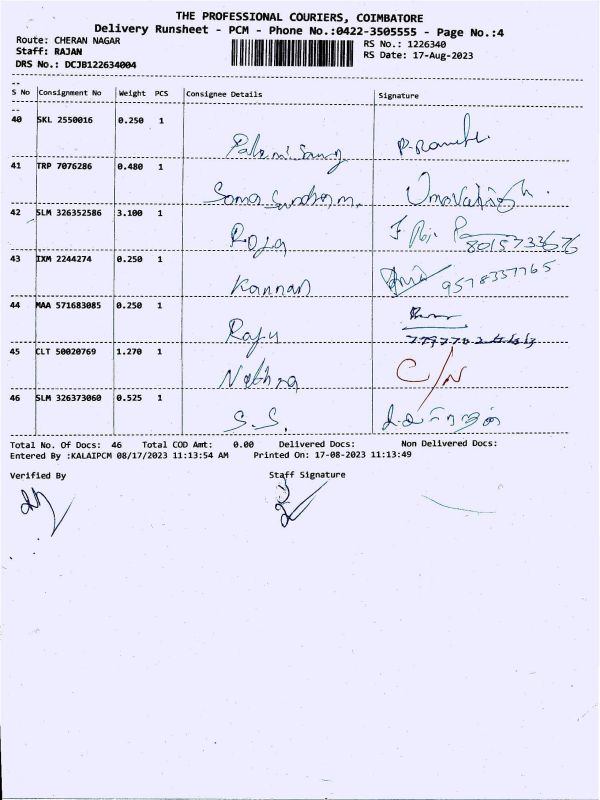 THE PROFESSIONAL COURIERS, COIMBATORE
Delivery Runsheet - PCM - Phone No.:0422-3505555 - Page No.:4
Route: CHERAN NAGAR
RS No.: 1226340
Staff: RAJAN
RS Date: 17-Aug-2023
DRS No.: DCJB122634004
S No Consignment No Weight PCS Consignee Details Signature
40 SKL 2550016 0.250 1
P-Ramesh.
41 TRP 7076286 0.480 1
Soma Sundaram.
42 SLM 326352586 3.100 1
Roja
43 IXM 2244274 0.250 1
Kannan 9578337765
44 MAA 571683085 0.250 1
Raju
45 CLT 50020769 1.270 1
C/N
46 SLM 326373060 0.525 1
S.S.
Total No. Of Docs: 46 Total COD Amt: 0.00 Delivered Docs: Non Delivered Docs:
Entered By :KALAIPCM 08/17/2023 11:13:54 AM Printed On: 17-08-2023 11:13:49
Verified By Staff Signature